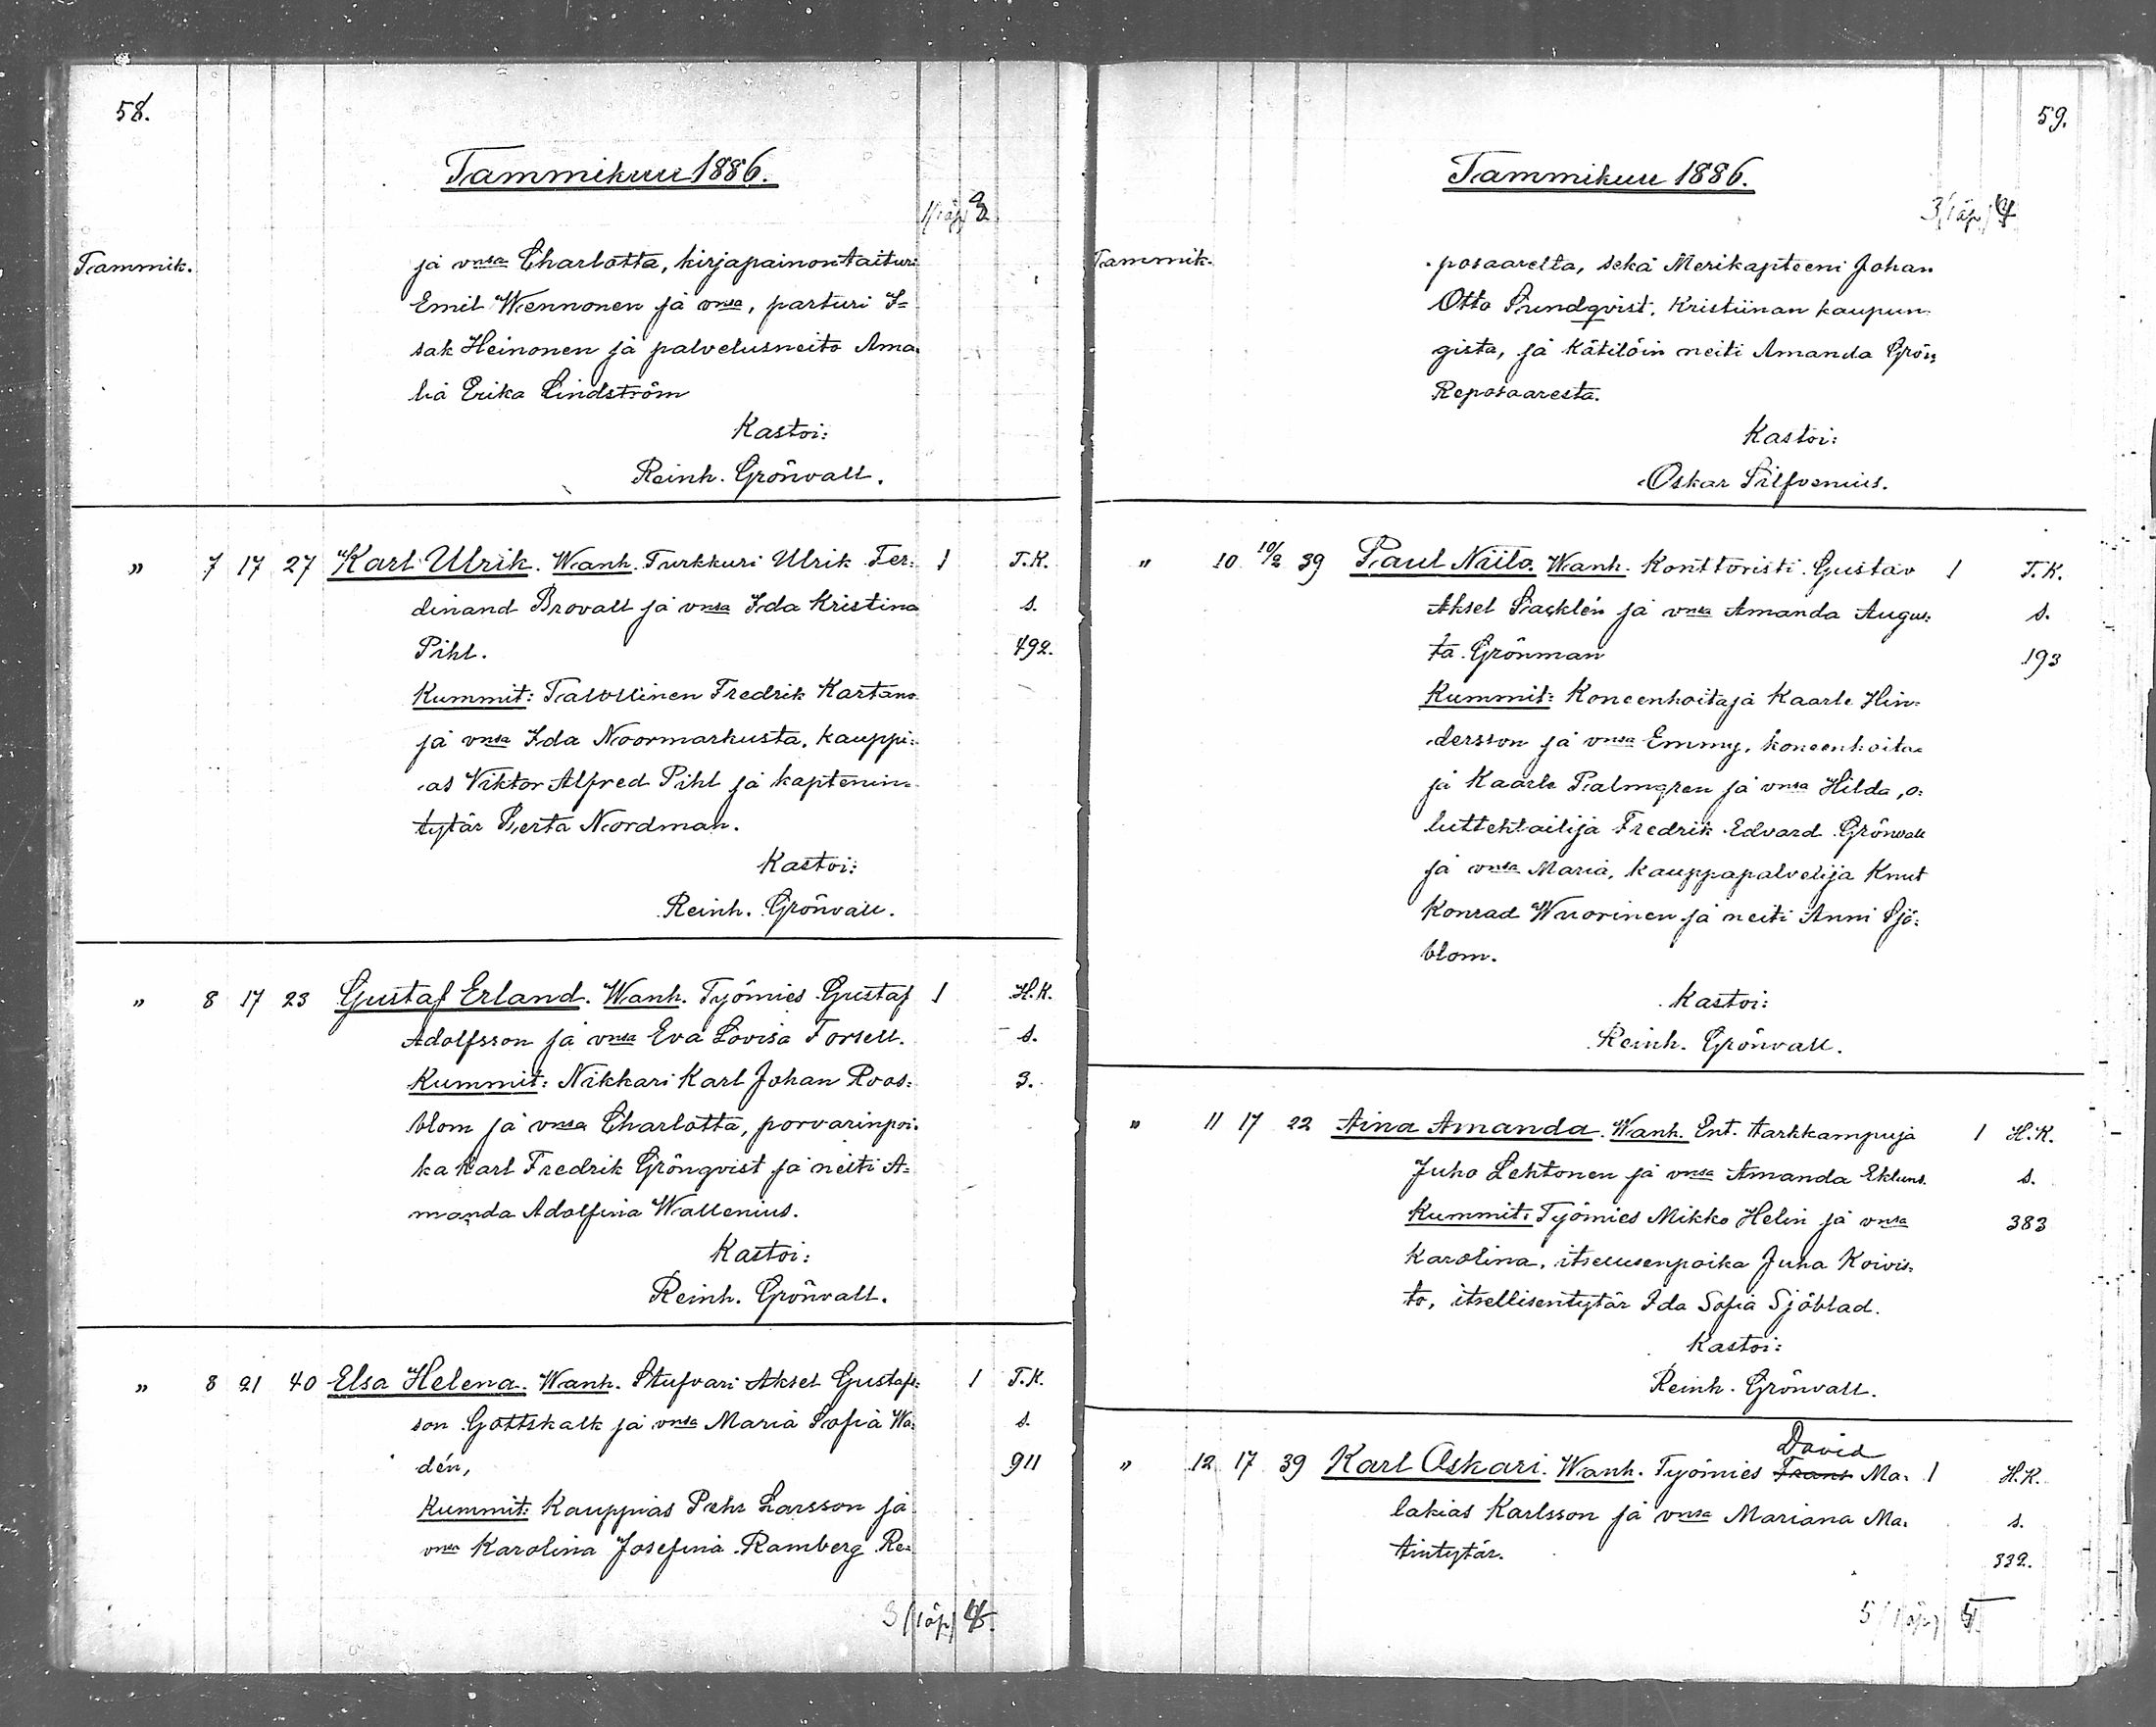 58.
Tammikuu 1886.
1(1 äp) 3
Tammik. ja vmsa Charlotta, kirjapainontaituri
Emil Wennonen ja vmsa, parturi I=
sak Heinonen ja palvelusneito Ama=
lia Erika Lindström
Kastoi:
Reinh. Grönvall.
" 7 17 27 Karl Ulrik. Wanh. Turkkuri Ulrik Fer= 1 T.K.
dinand Brovall ja vmsa Ida Kristina s.
Pihl. 492.
Kummit: Talollinen Fredrik Kartano
ja vmsa Ida Noormarkusta, kauppi=
as Viktor Alfred Pihl ja kaptenin=
tytär Berta Nordman.
Kastoi:
Reinh. Grönvall.
" 8 17 23 Gustaf Erland. Wanh. Työmies Gustaf 1 H.K.
Adolfsson ja vmsa Eva Lovisa Forsell. s.
Kummit: Nikkari Karl Johan Roos= 3.
blom ja vmsa Charlotta, porvarinpoi=
ka Karl Fredrik Grönqvist ja neiti A=
manda Adolfina Wallenius.
Kastoi:
Reinh. Grönvall.
" 8 21 40 Elsa Helena. Wanh. Stufvari Aksel Gustafs= 1 T.K.
son Gottskalk ja vmsa Maria Sofia Wa= s.
dén, 911
Kummit: Kauppias Pehr Larsson ja
vmsa Karolina Josefina Ramberg Re=
3 (1 äp) 4
59.
Tammikuu 1886.
3 (1 äp) 4
Tammik. posaarelta, sekä Merikapteeni Johan
Otto Sundqvist, Kristiinan kaupun=
gista, ja kätilöin neiti Amanda Grön
Reposaaresta.
Kastoi:
Oskar Silfvenius.
" 10 10/2 39 Paul Niilo. Wanh. Konttoristi Gustav 1 T.K.
Aksel Sacklén ja vmsa Amanda Augus= s.
ta Grönman 193
Kummit: Koneenhoitaja Kaarle Hin=
dersson ja vmsa Emmy, koneenhoita=
ja Kaarle Palmgren ja vmsa Hilda, o=
luttehtailija Fredrik Edvard Grönvall
ja vmsa Maria, kauppapalvelija Knut
Konrad Wuorinen ja neiti Anni Sjö=
blom.
Kastoi:
Reinh. Grönvall.
" 11 17 22 Aina Amanda. Wanh. Ent. tarkkampuja 1 H.K.
Juho Lehtonen ja vmsa Amanda Eklund. s.
Kummit: Työmies Mikko Helin ja vmsa 383
Karolina, itsellisenpoika Juha Koivis=
to, itsellisentytär Ida Sofia Sjöblad.
Kastoi:
Reinh. Grönvall.
David
" 12 17 39 Karl Oskari. Wanh. Työmies Frans Ma= 1 H.K.
lakias Karlsson ja vmsa Mariana Ma= s.
tintytär. 332.
5 (1 äp) 5